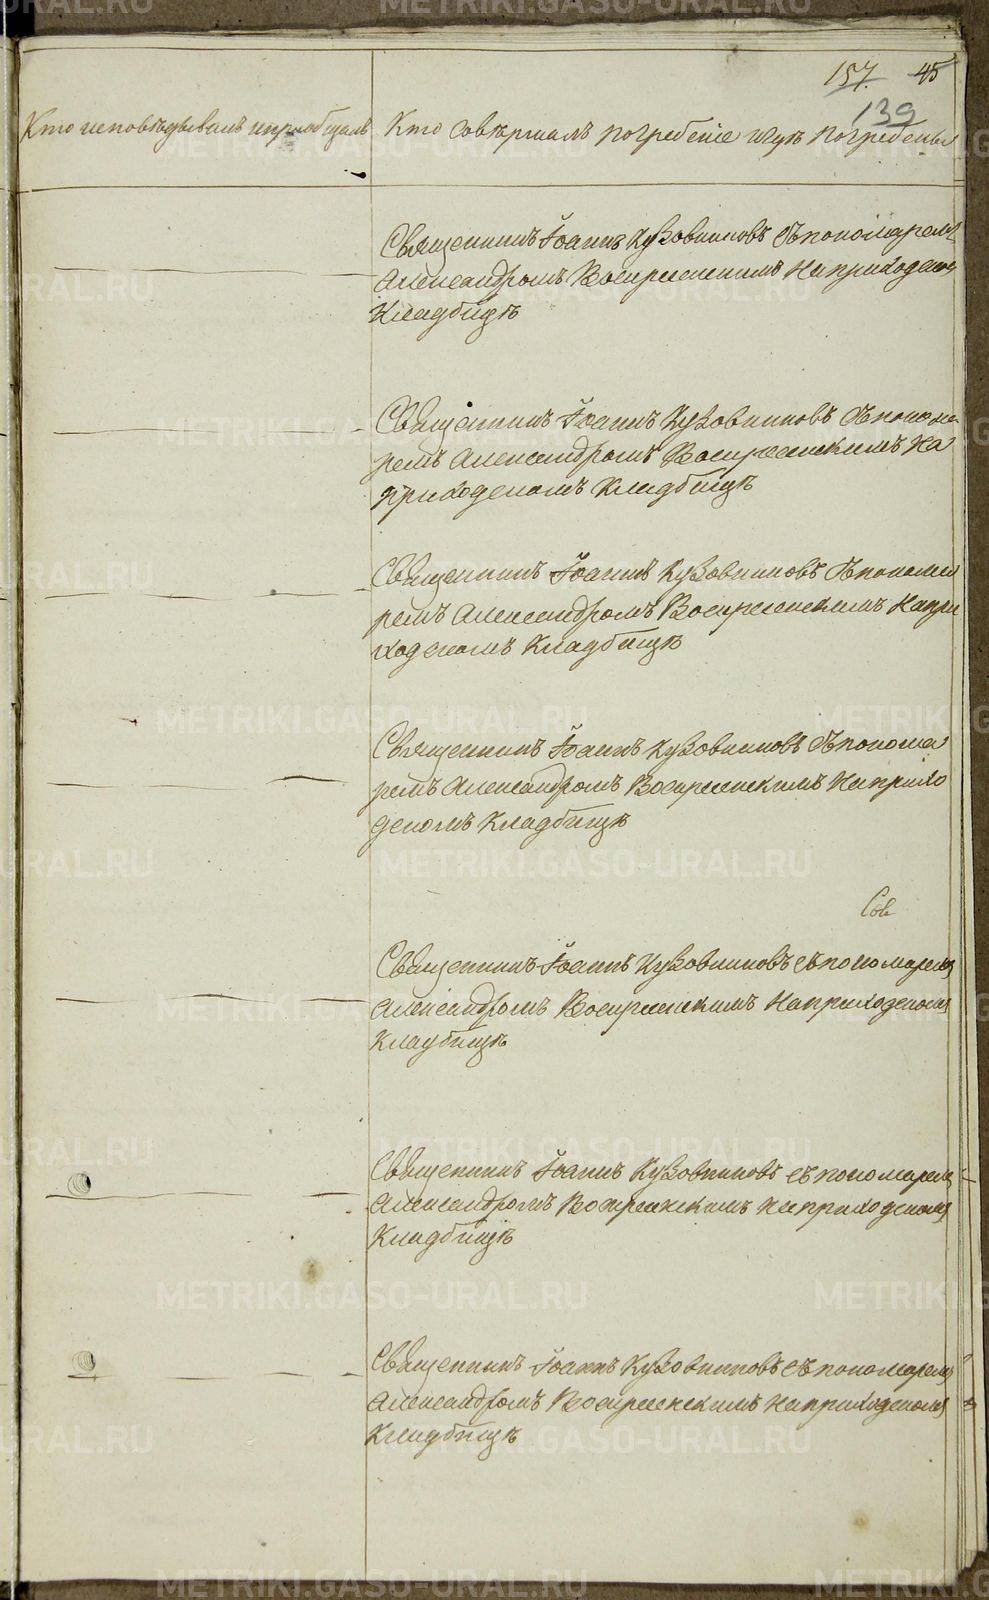 157. 45
139
Кто исповѣдывалъ и приобщалъ
Кто совѣршалъ погребеніе и гдѣ погребены
Священникъ Іоаннъ Кузовниковъ съ пономаремъ
Александромъ Воскресенскимъ на приходскомъ
кладбищѣ
Священникъ Іоаннъ Кузовниковъ съ понома
ремъ Александромъ Воскресенскимъ на
приходскомъ кладбищѣ
Священникъ Іоаннъ Кузовниковъ съ понома
ремъ Александромъ Воскресенскимъ на при
ходскомъ кладбищѣ
Священникъ Іоаннъ Кузовниковъ съ понома
ремъ Александромъ Воскресенскимъ на прихо
дскомъ кладбищѣ
Сов
Священникъ Іоаннъ Кузовниковъ съ пономаремъ
Александромъ Воскресенскимъ на приходскомъ
кладбищѣ
Священникъ Іоаннъ Кузовниковъ съ пономаремъ
Александромъ Воскресенскимъ на приходскомъ
кладбищѣ
Священникъ Іоаннъ Кузовниковъ съ пономаремъ
Александромъ Воскресенскимъ на приходскомъ
кладбищѣ
METRIKI.GASO-URAL.RU